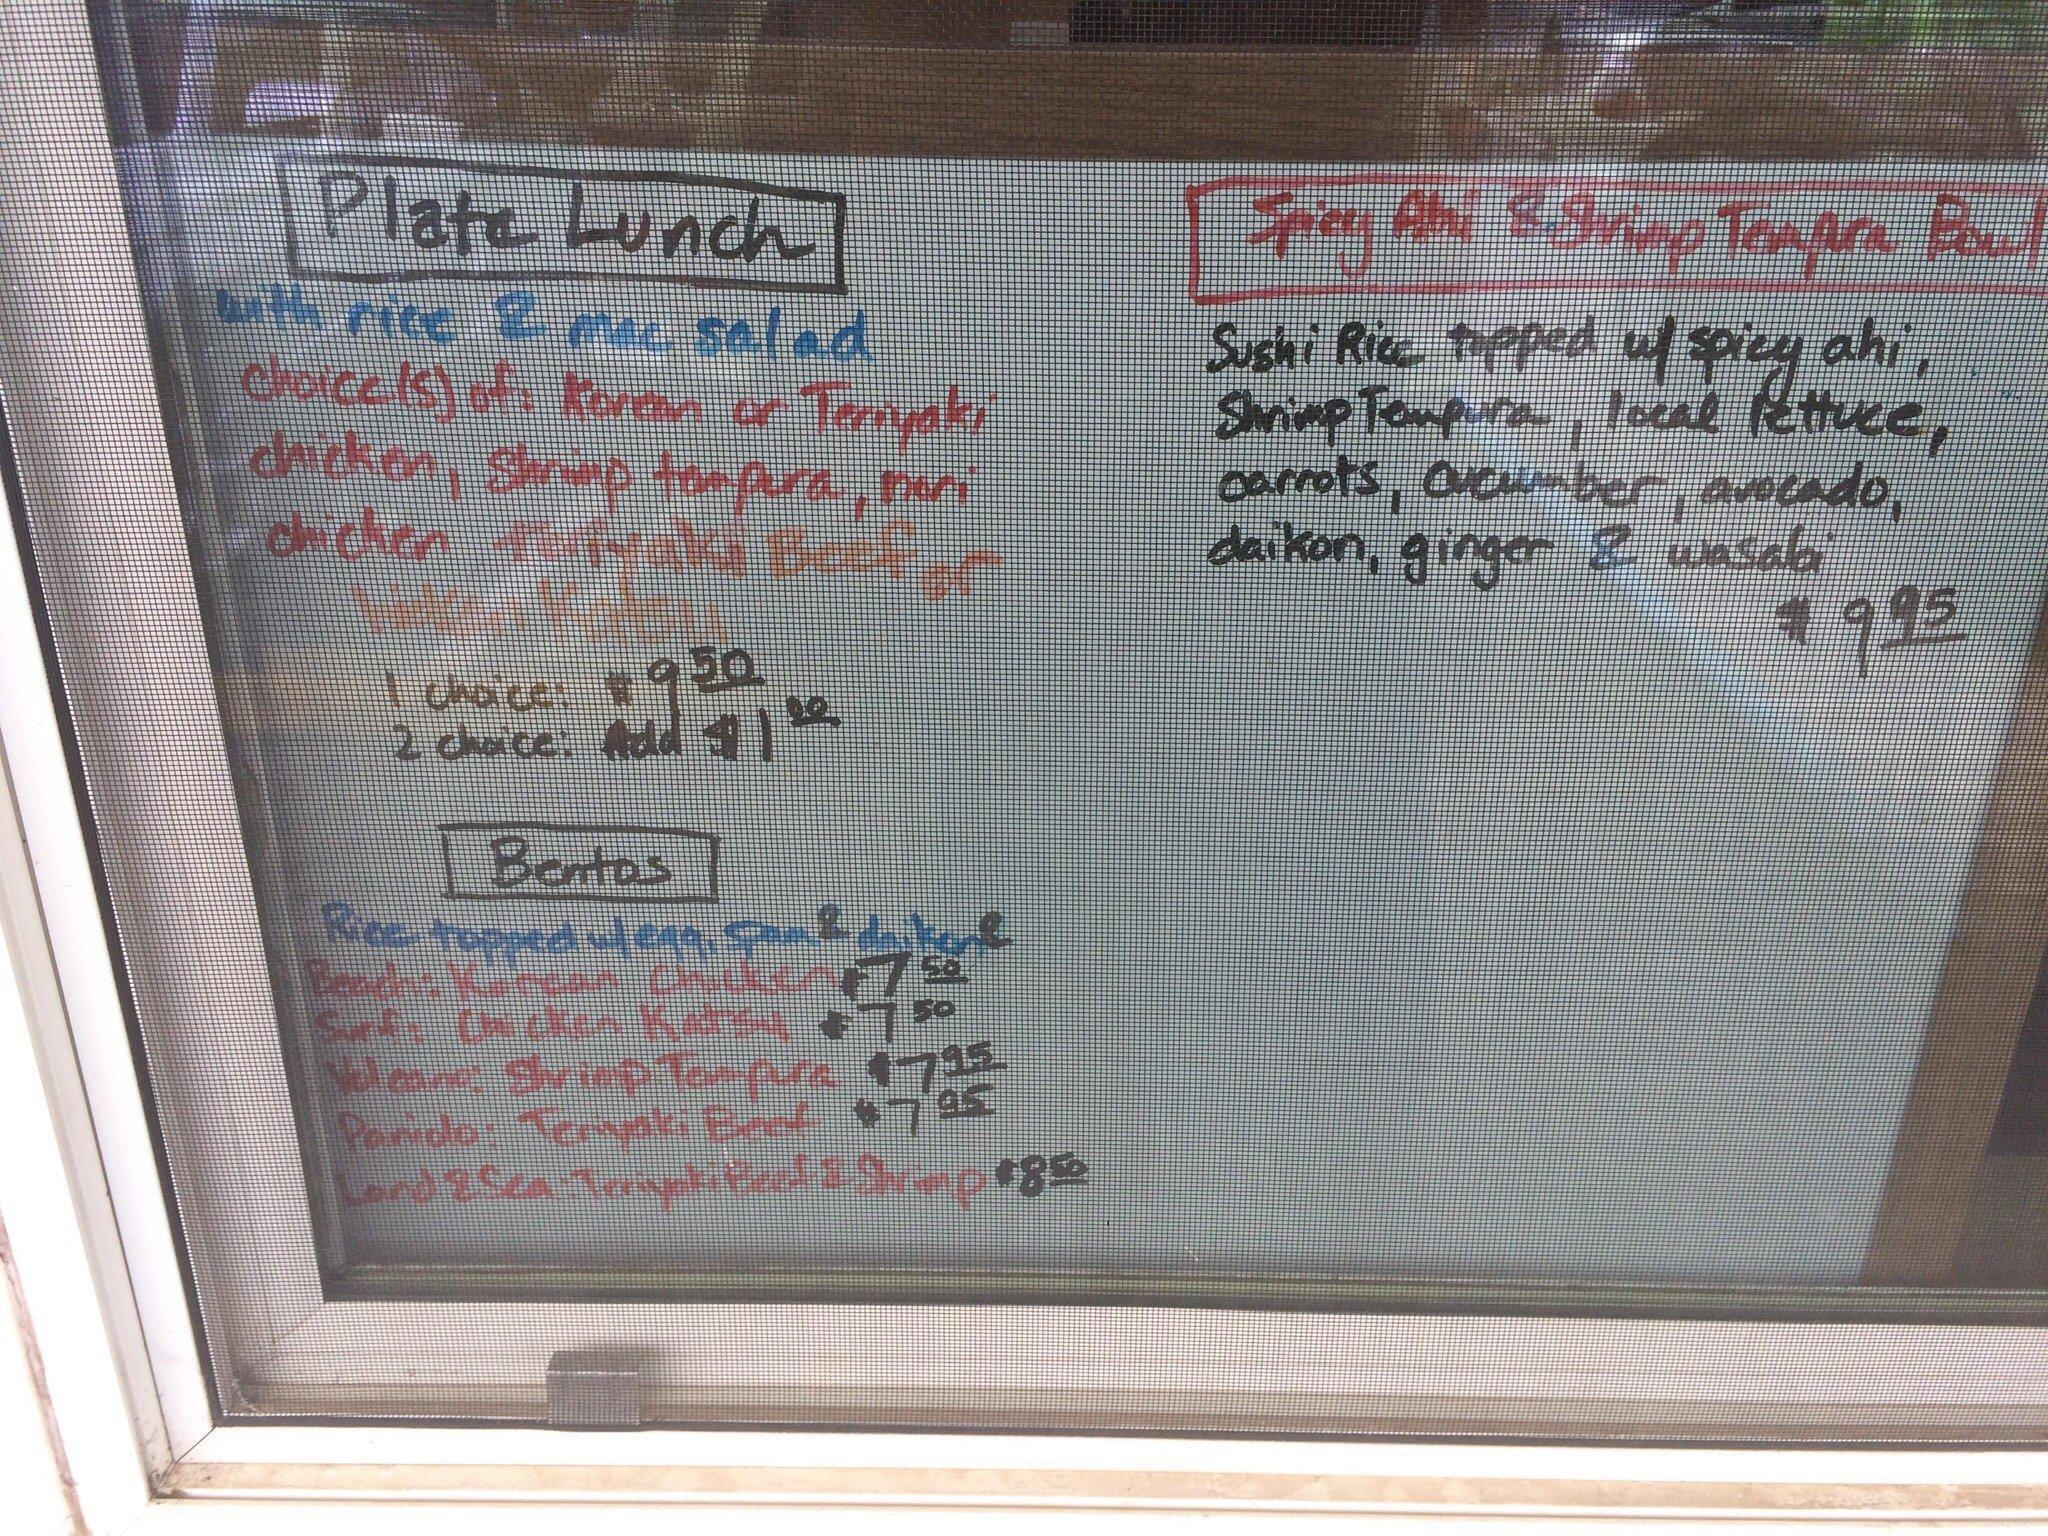 Plate Lunch
with rice & mac salad
choice(s) of: Korean or Teriyaki
chicken, Shrimp tempura, nori
chicken Teriyaki Beef or
Katsu
1 choice: $9.50
2 choice: Add $1
Bentos
Rice topped w/ egg, spam & daikon &
Beach: Korean Chicken $7.50
Surf: Chicken Katsu $7.50
Volcano: Shrimp Tempura $7.95
Teriyaki Beef $7.95
Land & Sea: Teriyaki Beef & Shrimp $8.50
Spicy Ahi & Shrimp Tempura Bowl
Sushi Rice topped w/ spicy ahi,
Shrimp Tempura, local lettuce,
carrots, cucumber, avocado,
daikon, ginger & wasabi
$9.95